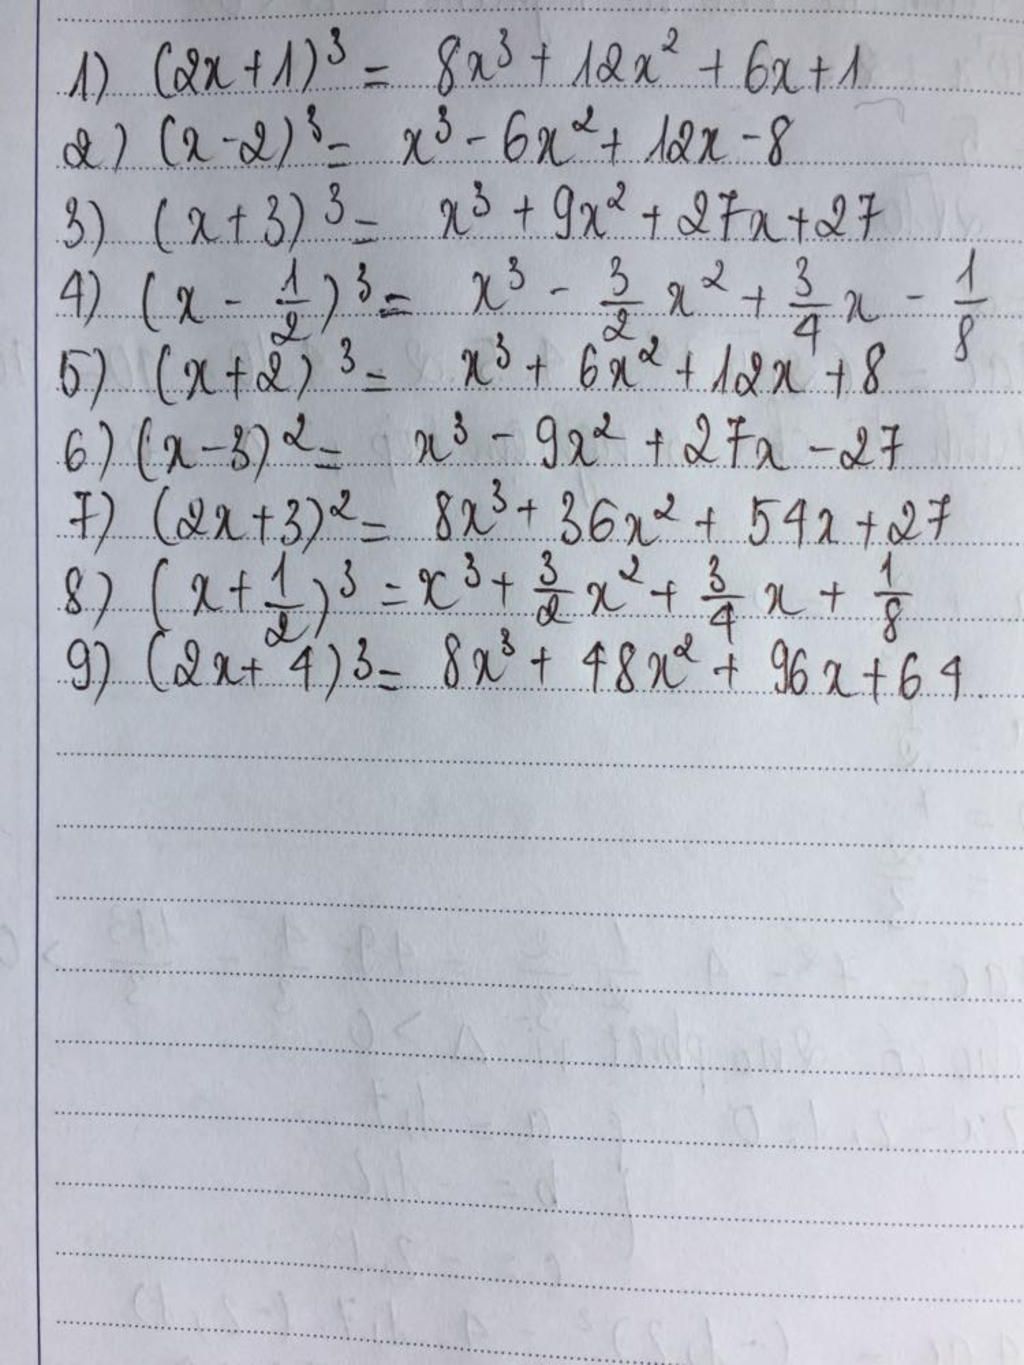 1) (2x+1)³ = 8x³ + 12x² + 6x + 1
2) (x-2)³ = x³ - 6x² + 12x - 8
3) (x+3)³ = x³ + 9x² + 27x + 27
4) (x - 1/2)³ = x³ - 3/2 x² + 3/4 x - 1/8
5) (x+2)³ = x³ + 6x² + 12x + 8
6) (x-3)² = x³ - 9x² + 27x - 27
7) (2x+3)² = 8x³ + 36x² + 54x + 27
8) (x + 1/2)³ = x³ + 3/2 x² + 3/4 x + 1/8
9) (2x+4)³ = 8x³ + 48x² + 96x + 64